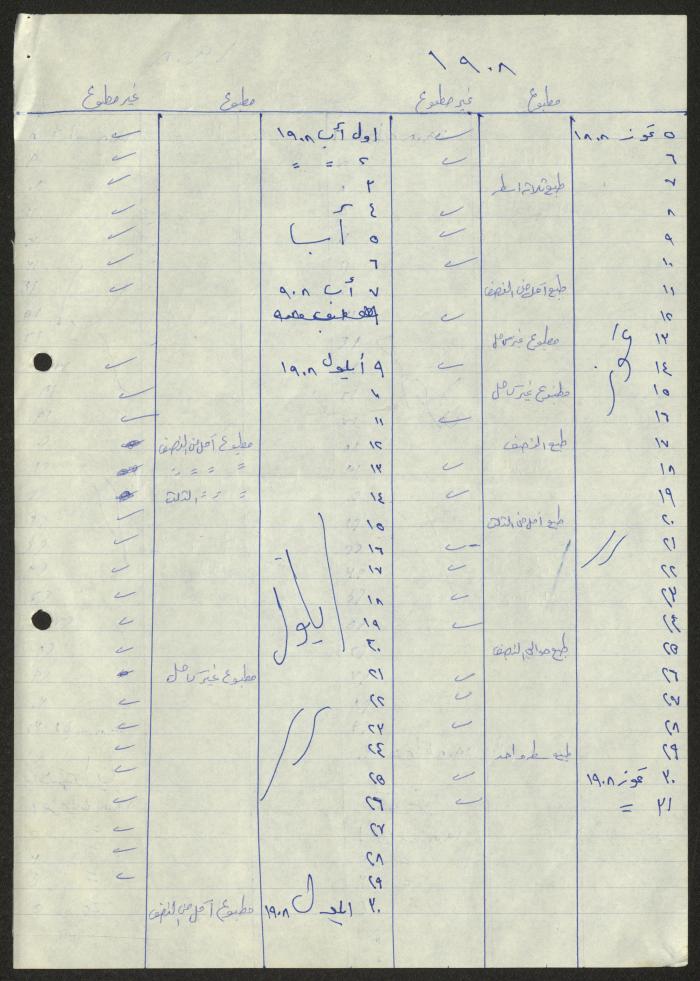 ١٩٠٨
مطبوع غير مطبوع مطبوع غير مطبوع
٥ تموز ١٩٠٨
٦
٧ طبع ثلاثة اسطر
٨
٩
١٠
١١ طبع أقل من النصف
١٢
١٣ مطبوع غير كامل
١٤ تموز
١٥ مطبوع غير كامل
١٦
١٧ طبع النصف
١٨
١٩
٢٠ طبع أقل من الثلث
٢١ //
٢٢
٢٣
٢٤
٢٥ طبع حوالي النصف
٢٦
٢٧
٢٨
٢٩ طبع سطر واحد
٣٠ تموز ١٩٠٨
٣١ =
اول أب ١٩٠٨
٢ = =
٣
٤
٥ أب
٦
٧ أب ٩٠٨
٩ أيلول ١٩٠٨
١٠
١١
١٢ مطبوع أقل من النصف
١٣ = = = =
١٤ = = = الثلث
١٥
١٦
١٧ ايلول
١٨
١٩
٢٠
٢١ مطبوع غير كامل
٢٢
٢٣ //
٢٤
٢٥
٢٦
٢٧
٢٨
٢٩
٣٠ ايلول ١٩٠٨ مطبوع أقل من النصف